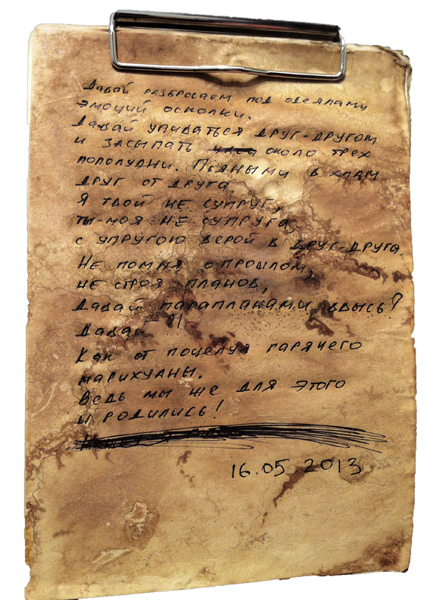 Давай разбросаем под одеялами
эмоций осколки.
Давай упиваться друг-другом
и засыпать около трех
пополудни. Пьяными в хлам
друг от друга
Я твой не супруг,
ты-моя не супруга,
с упругою верой в друг-друга.
Не помня о прошлом,
не строя планов,
Давай парапланами ввысь?
Давай!!
Как от поцелуя гарячего
марихуаны.
Ведь мы же для этого
и родились!
16.05 2013